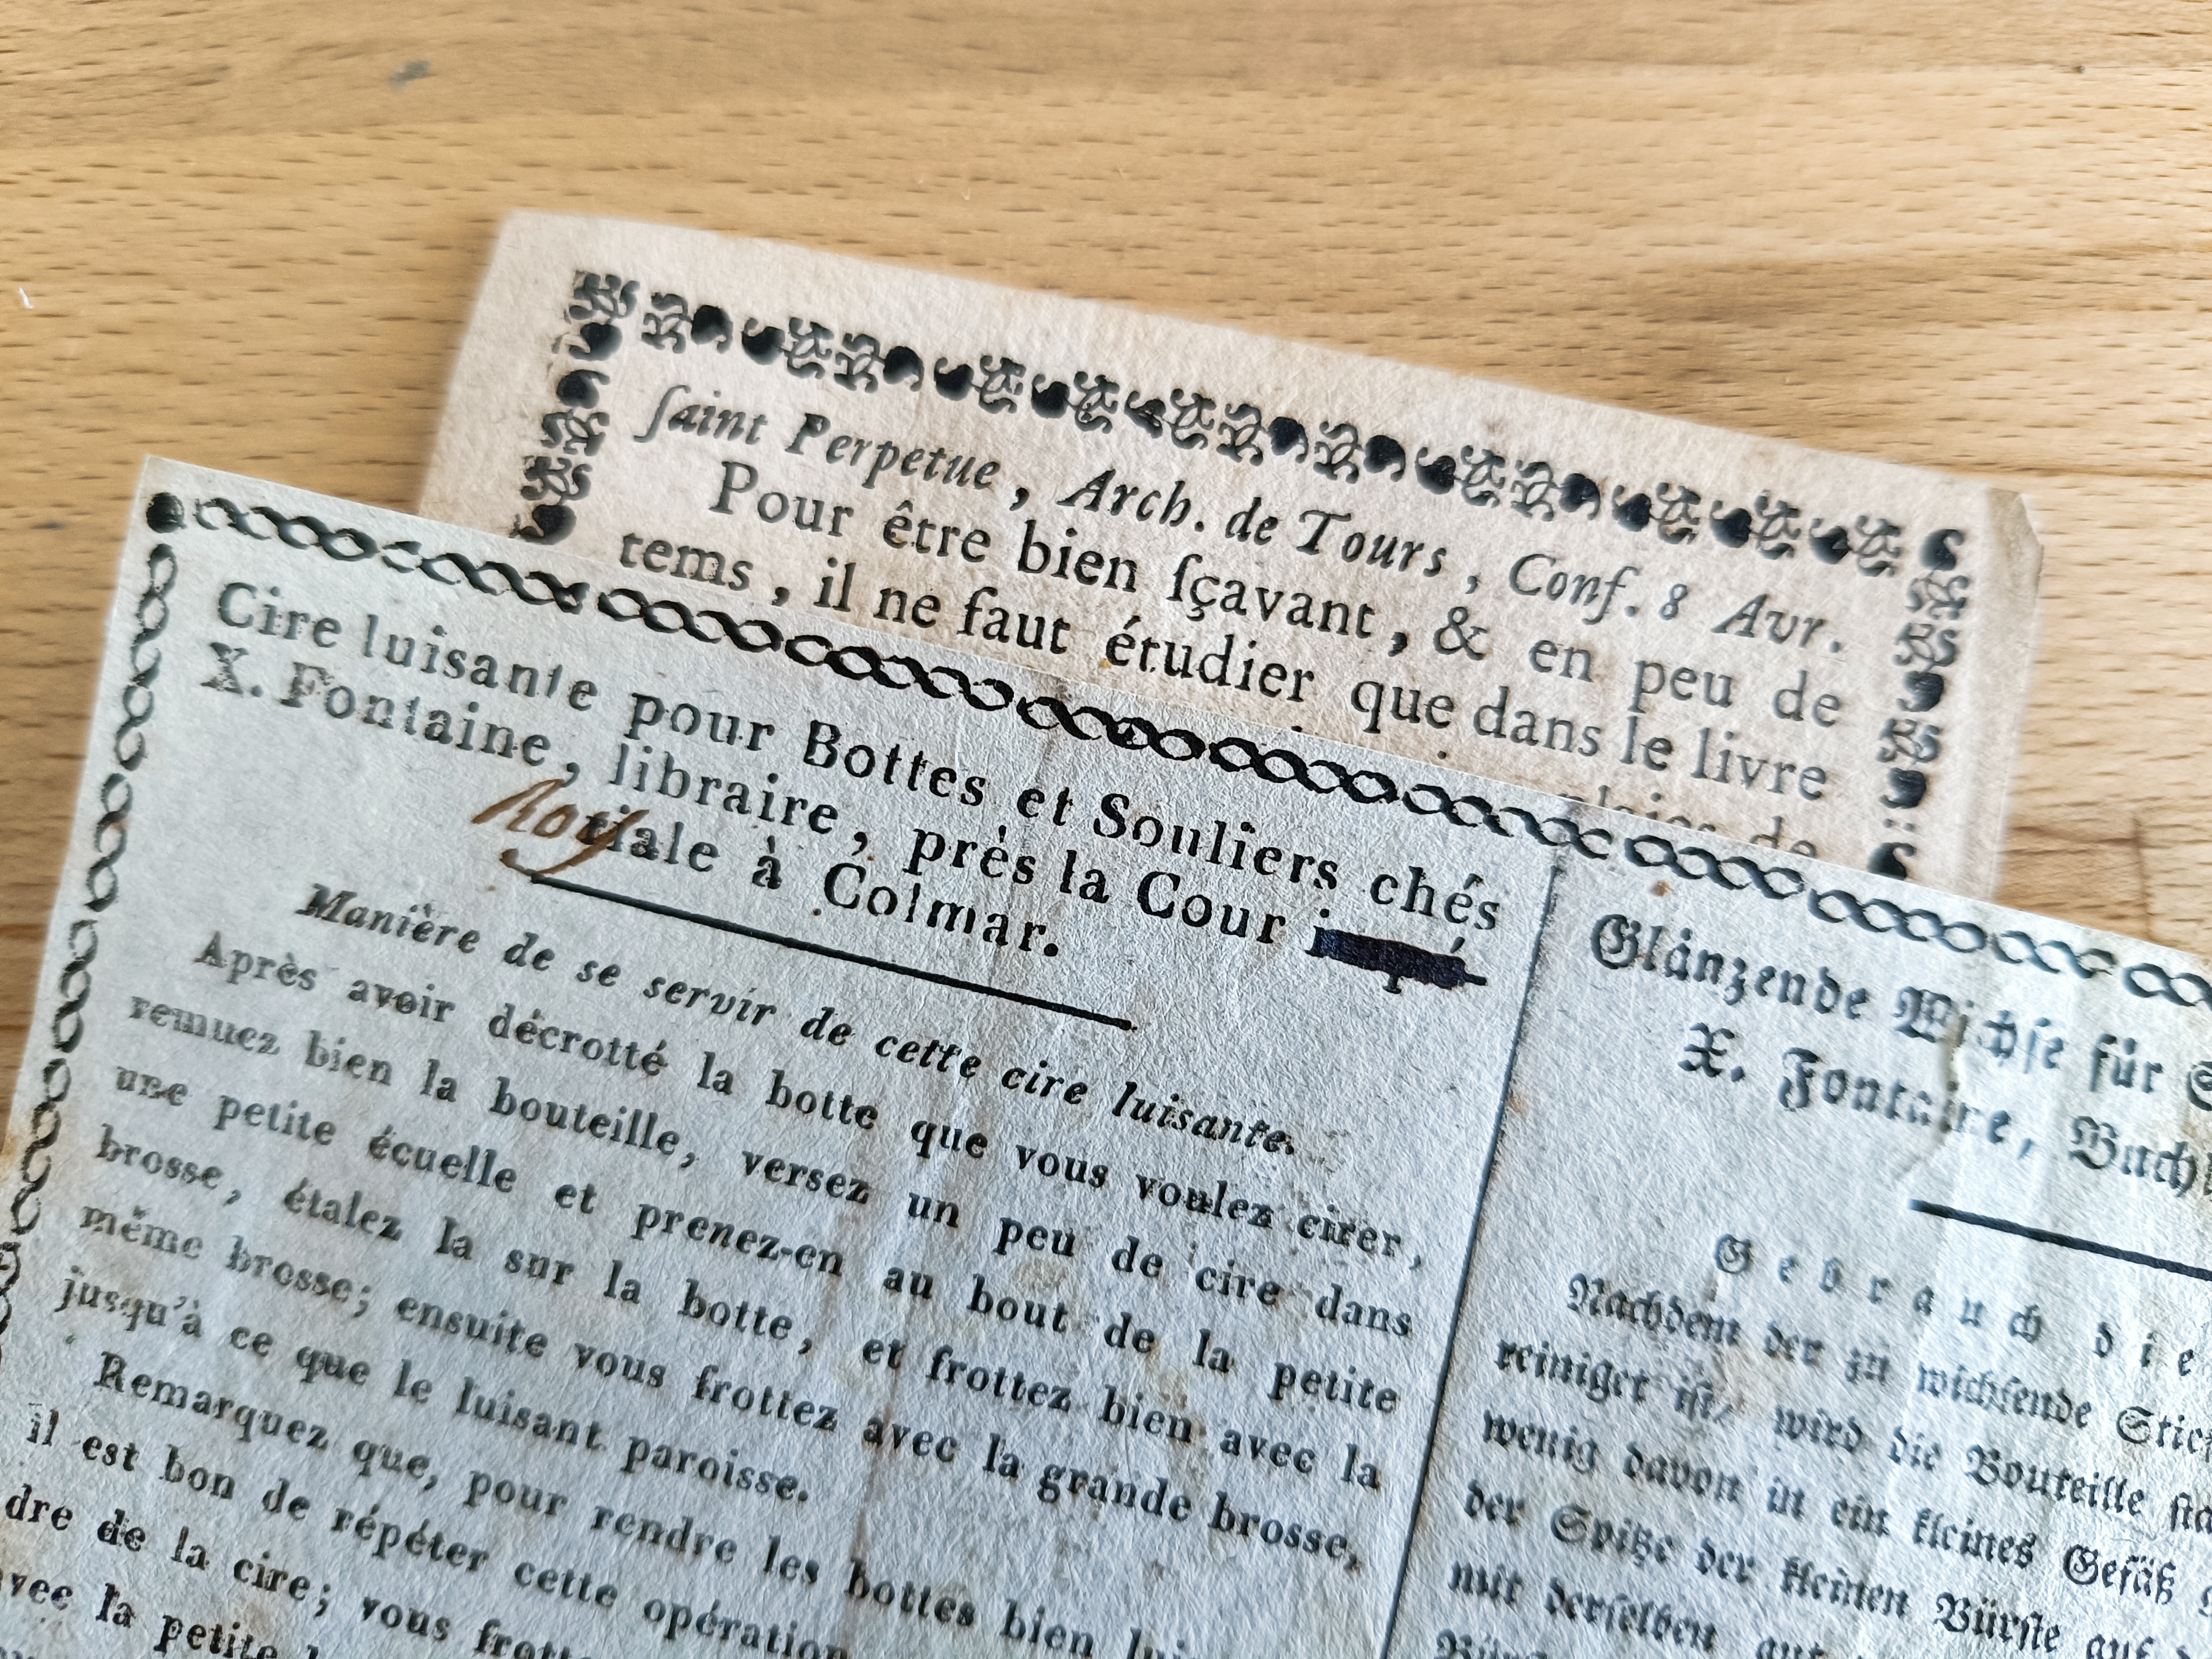 ſaint Perpetue, Arch. de Tours, Conf. 8 Avr.
Pour être bien ſçavant, & en peu de
tems, il ne faut étudier que dans le livre
de
Cire luisante pour Bottes et Souliers chés
X. Fontaine, libraire, près la Cour
Roy riale à Colmar.
Manière de se servir de cette cire luisante.
Après avoir décrotté la botte que vous voulez cirer,
remuez bien la bouteille, versez un peu de cire dans
une petite écuelle et prenez-en au bout de la petite
brosse, étalez la sur la botte, et frottez bien avec la
même brosse; ensuite vous frottez avec la grande brosse,
jusqu'à ce que le luisant paroisse.
Remarquez que, pour rendre les bottes bien
il est bon de répéter cette opération
dre de la cire; vous
avec la petite
Glänzende Wichſe für
X. Fontaine,
Gebrauch
Nachdem der zu wichſende
reiniget iſt, wird die Bouteille
wenig davon in ein kleines Gefäß
der Spitze der kleinen Bürſte auf
mit derſelben